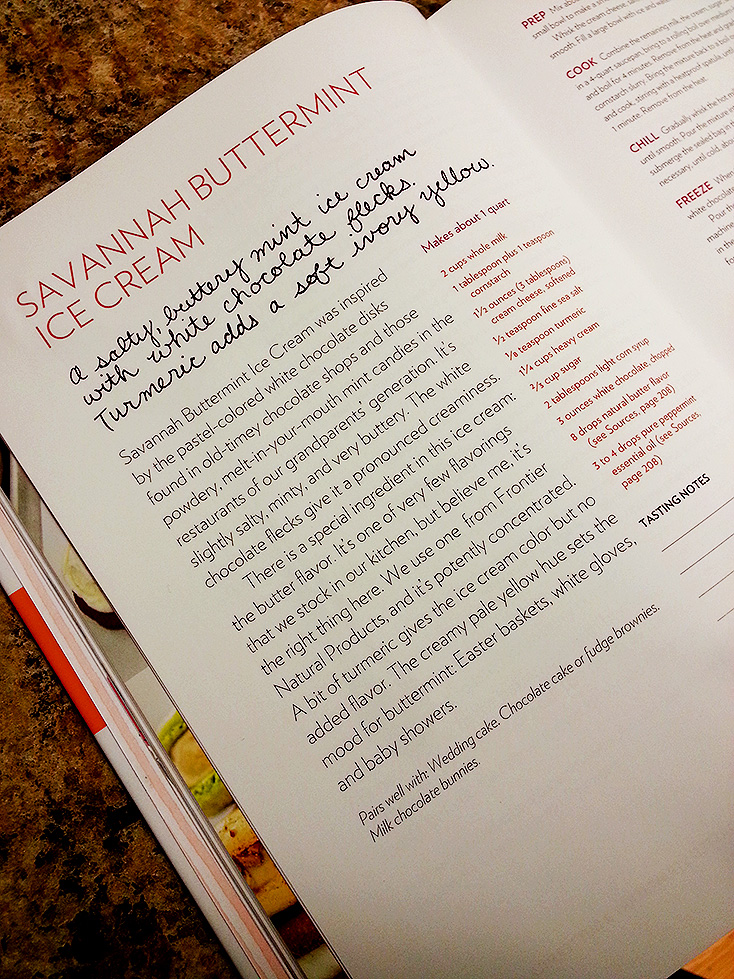 SAVANNAH BUTTERMINT
ICE CREAM
a salty, buttery mint ice cream
with white chocolate flecks.
Turmeric adds a soft ivory yellow.
Savannah Buttermint Ice Cream was inspired
by the pastel-colored white chocolate disks
found in old-timey chocolate shops and those
powdery, melt-in-your-mouth mint candies in the
restaurants of our grandparents' generation. It's
slightly salty, minty, and very buttery. The white
chocolate flecks give it a pronounced creaminess.
There is a special ingredient in this ice cream:
the butter flavor. It's one of very few flavorings
that we stock in our kitchen, but believe me, it's
the right thing here. We use one from Frontier
Natural Products, and it's potently concentrated.
A bit of turmeric gives the ice cream color but no
added flavor. The creamy pale yellow hue sets the
mood for buttermint: Easter baskets, white gloves,
and baby showers.
Pairs well with: Wedding cake. Chocolate cake or fudge brownies.
Milk chocolate bunnies.
Makes about 1 quart
2 cups whole milk
1 tablespoon plus 1 teaspoon
cornstarch
1½ ounces (3 tablespoons)
cream cheese, softened
½ teaspoon fine sea salt
⅛ teaspoon turmeric
1¼ cups heavy cream
⅔ cup sugar
2 tablespoons light corn syrup
3 ounces white chocolate, chopped
8 drops natural butter flavor
(see Sources, page 208)
3 to 4 drops pure peppermint
essential oil (see Sources,
page 208)
TASTING NOTES
PREP Mix abo
small bowl to make a s
Whisk the cream cheese
smooth. Fill a large bowl with ice and wate
COOK Combine the remaining milk, the cream, sugar
in a 4-quart saucepan, bring to a rolling boil over med
and boil for 4 minutes. Remove from the heat and gr
cornstarch slurry. Bring the mixture back to a boil
and cook, stirring with a heatproof spatula, until
1 minute. Remove from the heat.
CHILL Gradually whisk the hot m
until smooth. Pour the mixture in
submerge the sealed bag in the
necessary, until cold, abou
FREEZE When
white chocolate
Pour th
machine
in the
fo